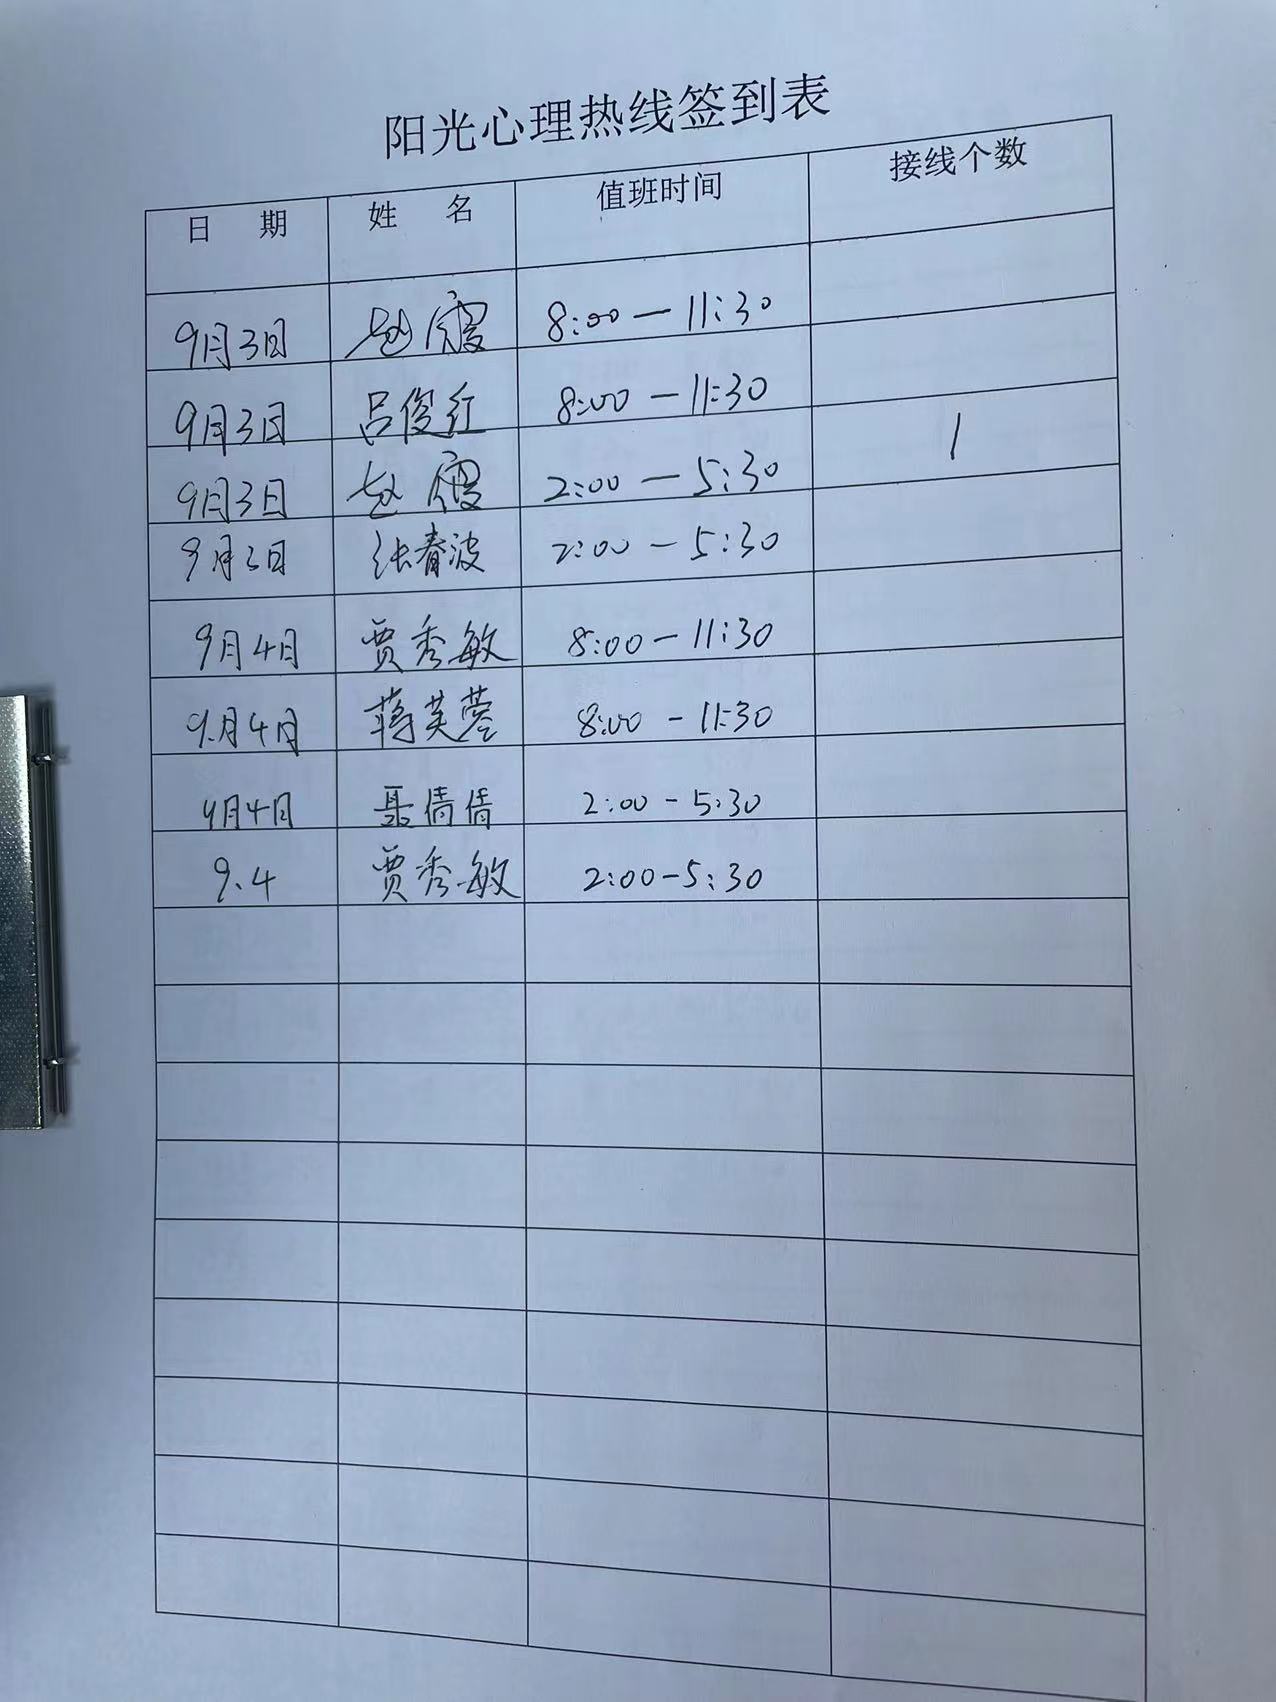 阳光心理热线签到表
日 期 姓 名 值班时间 接线个数
9月3日 赵霞 8:00—11:30
9月3日 吕俊红 8:00—11:30
9月3日 赵霞 2:00—5:30 1
9月3日 张春波 2:00—5:30
9月4日 贾秀敏 8:00—11:30
9月4日 蒋芙蓉 8:00—11:30
9月4日 聂倩倩 2:00—5:30
9.4 贾秀敏 2:00—5:30